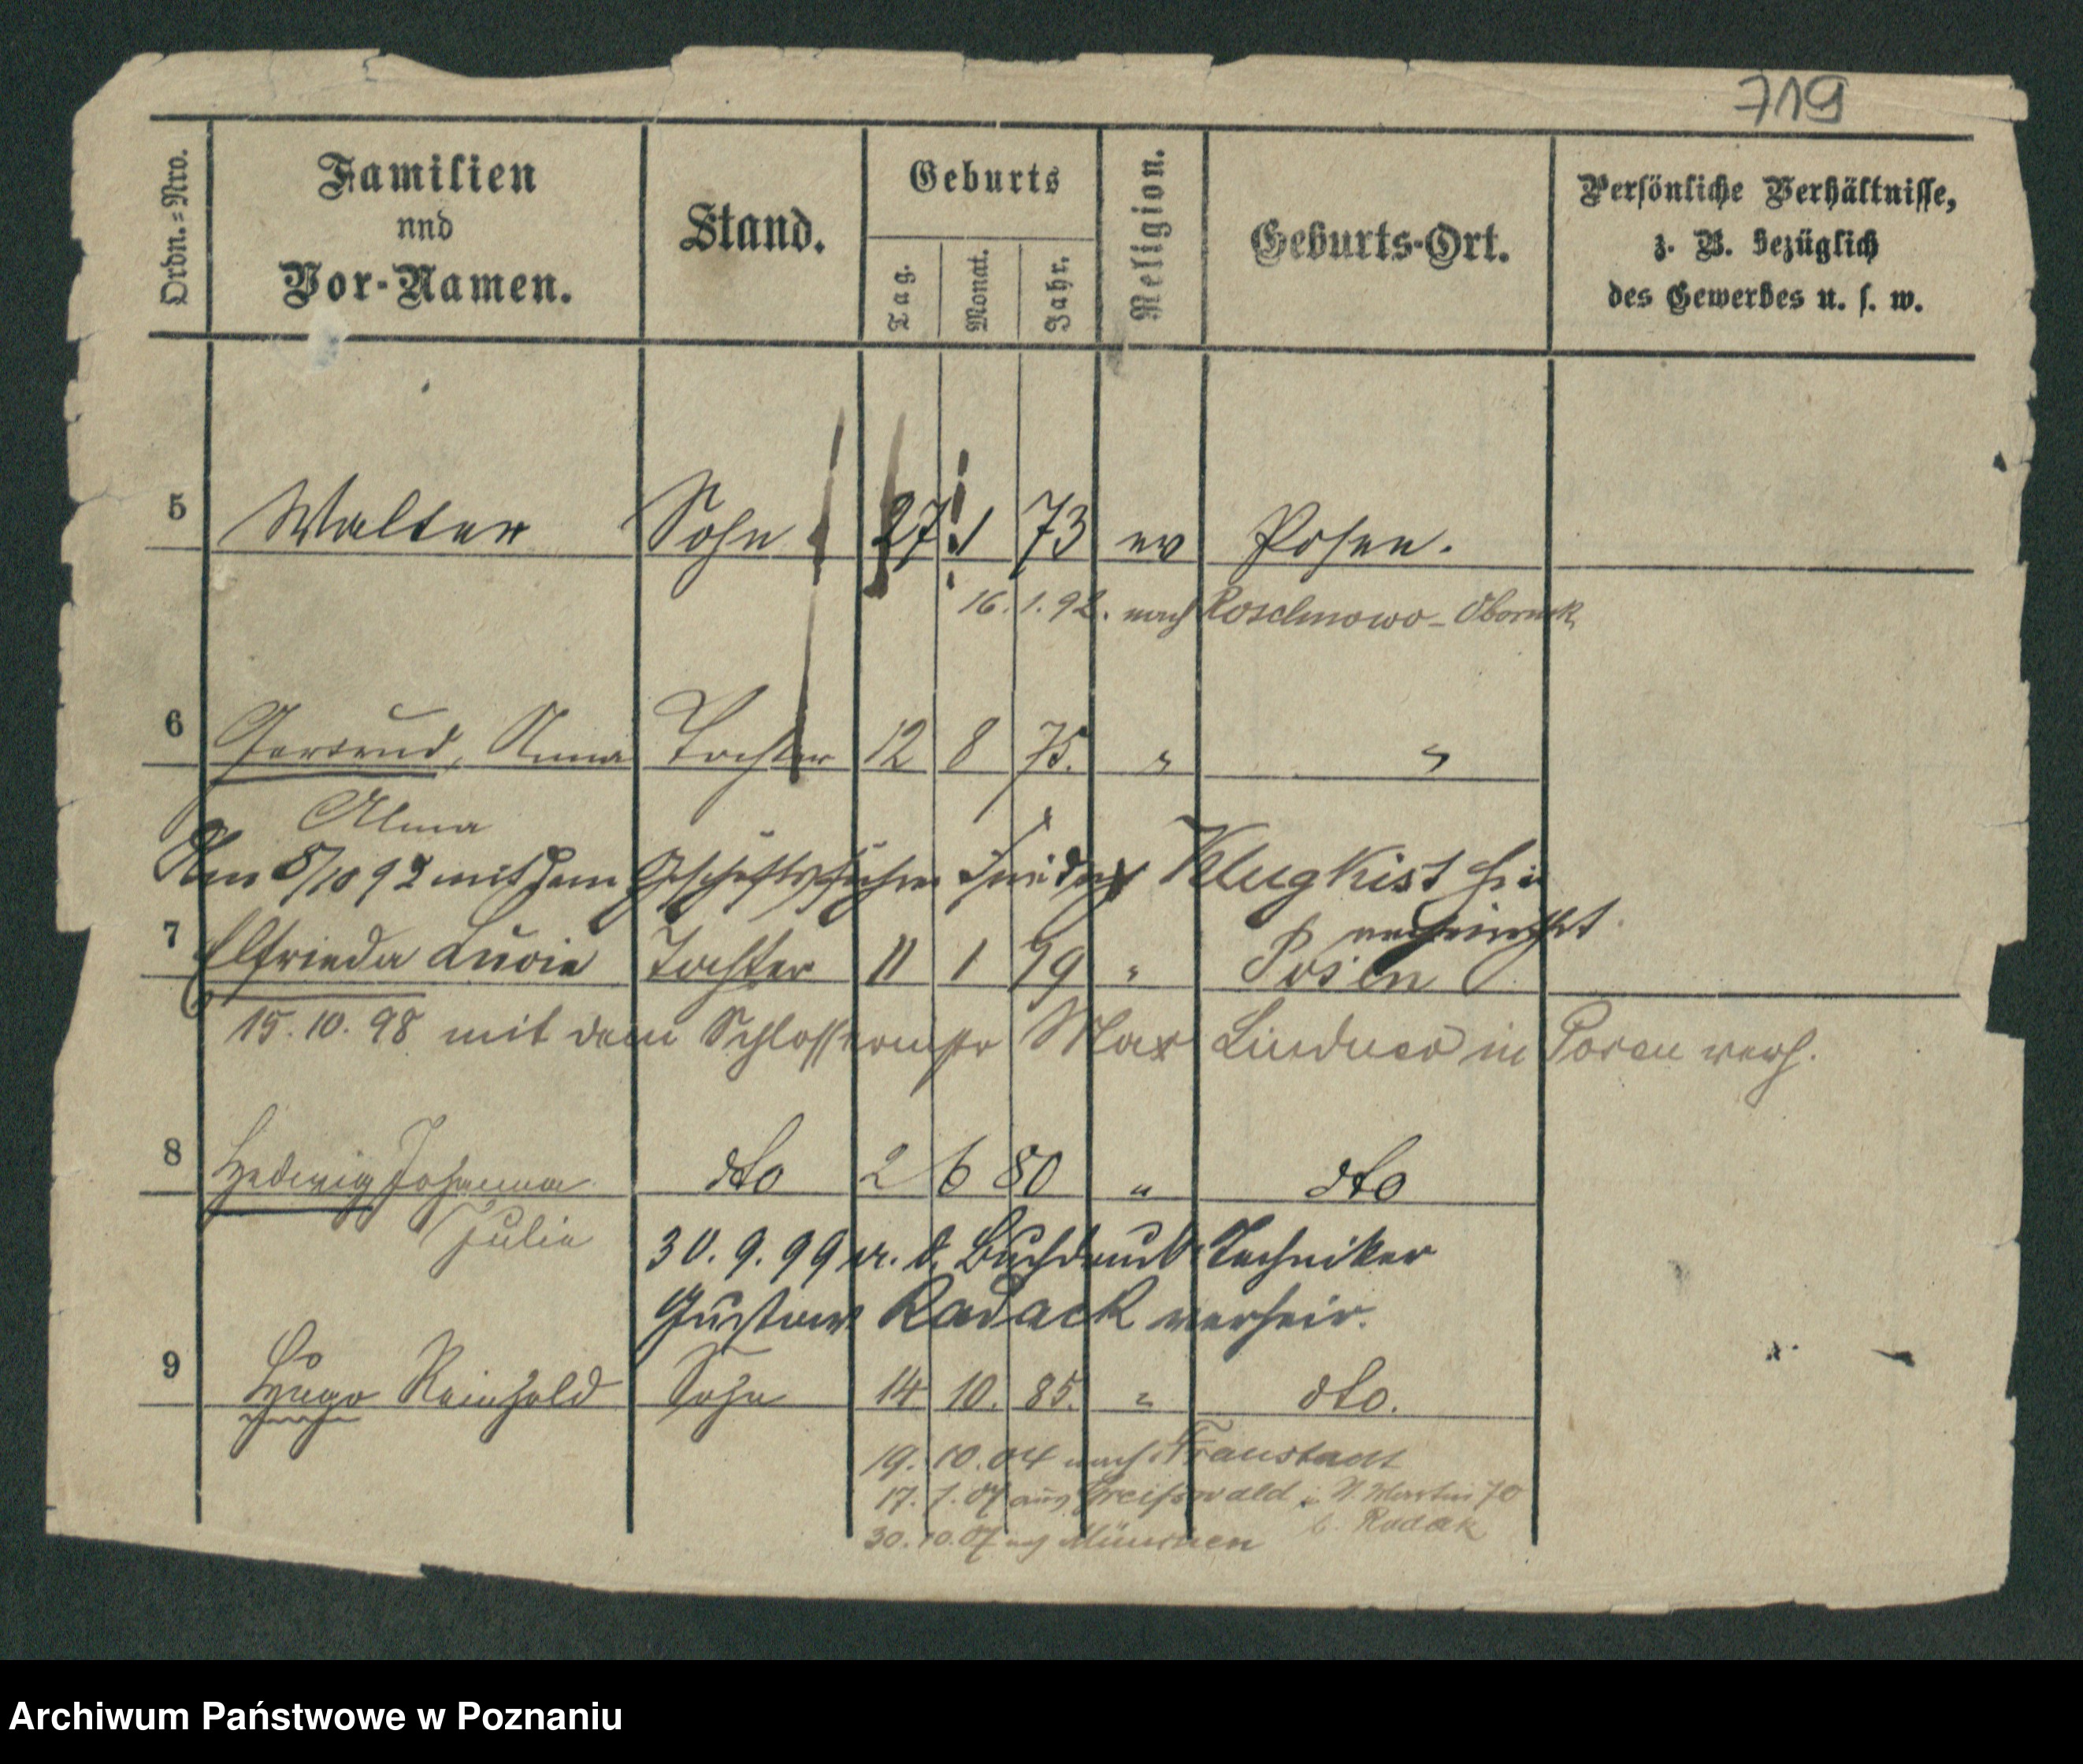 719
Ordn.=Nro.
Familien
nnd
Vor-Namen.
Stand.
Geburts
Tag.
Monat.
Jahr.
Religion.
Geburts-Ort.
Persönliche Verhältnisse,
z. B. bezüglich
des Gewerbes u. s. w.
5 Walter Sohn 27 1 73 ev Posen.
16. 1. 92. nach Roschnowo-Obornik
6 Gertrud, Anna Tochter 12 8 75. " "
Alma
Am 8/10 92 mit dem Geschäftsführer Friedr Klugkist hier
verheirathet
7 Elfrieda Lucie Tochter 11 1 79 " Posen
15. 10. 98 mit dem Schlossermstr Max Lindner in Posen verh.
8 Hedwig Johanna dto 2 6 80 " dto
Julie
30. 9. 99 m. d. Buchdruck-Techniker
Gustav Radack verheir.
9 Hugo Reinhold Sohn 14 10. 85. " dto.
19. 10. 04 nach Fraustadt
17. 7. 07 aus Greifswald i. St. Martin 70
b. Radak
30. 10. 07 nach München
Archiwum Państwowe w Poznaniu